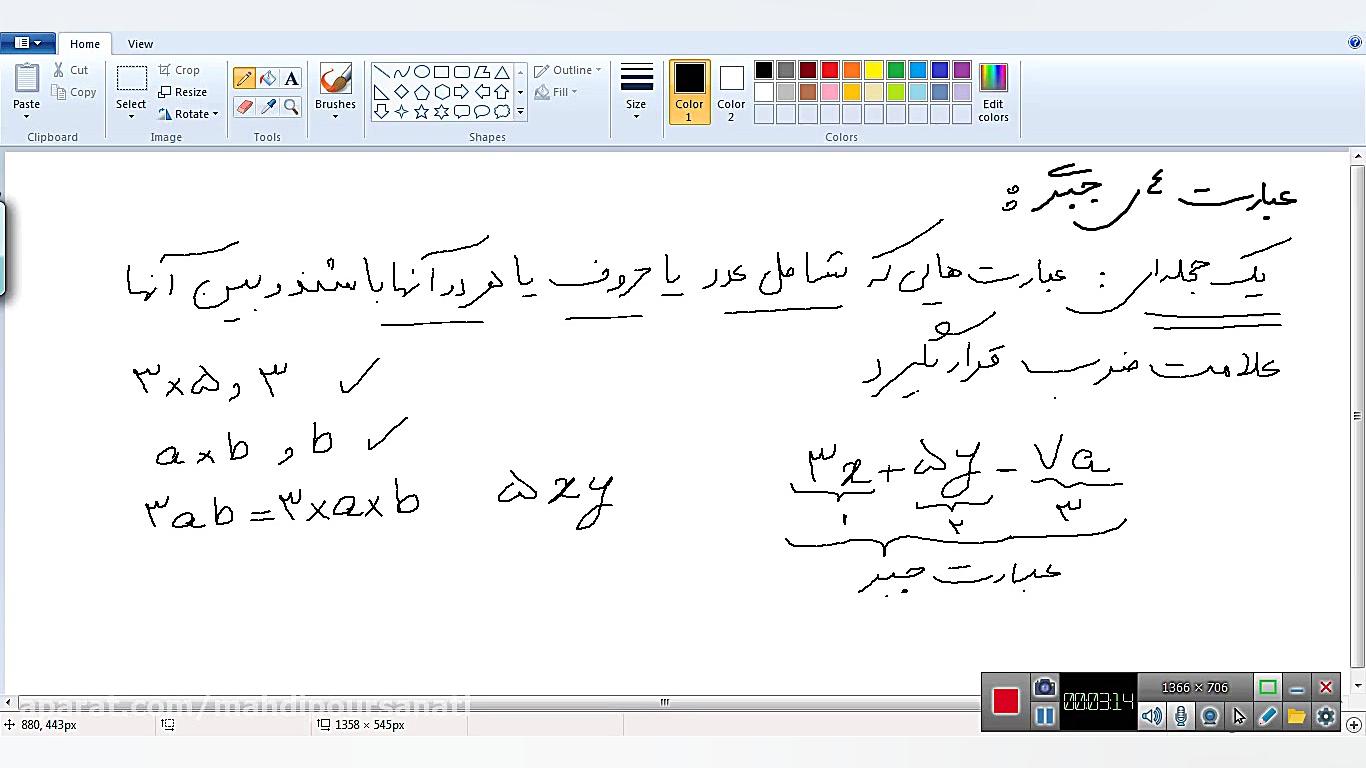 Home View
Paste Cut Copy Clipboard
Select Crop Resize Rotate Image
A Tools
Brushes
Outline Fill Shapes
Size
Color 1 Color 2 Edit colors Colors
عبارت های جبری :
یک جمله‌ای : عبارت هایی که شامل عدد یا حروف یا هر دو آنها باشند و بین آنها
علامت ضرب قرار بگیرد
۳×۵ , ۳ ✓
a×b , b ✓
۳ab = ۳×a×b
۵xy
۳x + ۵y - ۷a
۱ ۲ ۳
عبارت جبر
aparat.com/mahdipoursanati
1366 × 706
00:03:14
880, 443px
1358 × 545px